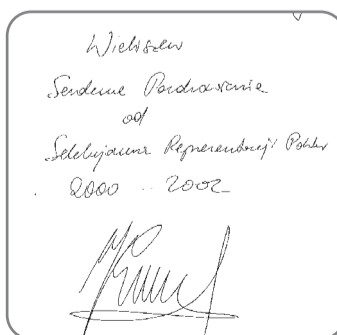 Wieliszew
Serdeczne Pozdrowienia
od
Selekcjonera Reprezentacji Polski
2000 - 2002